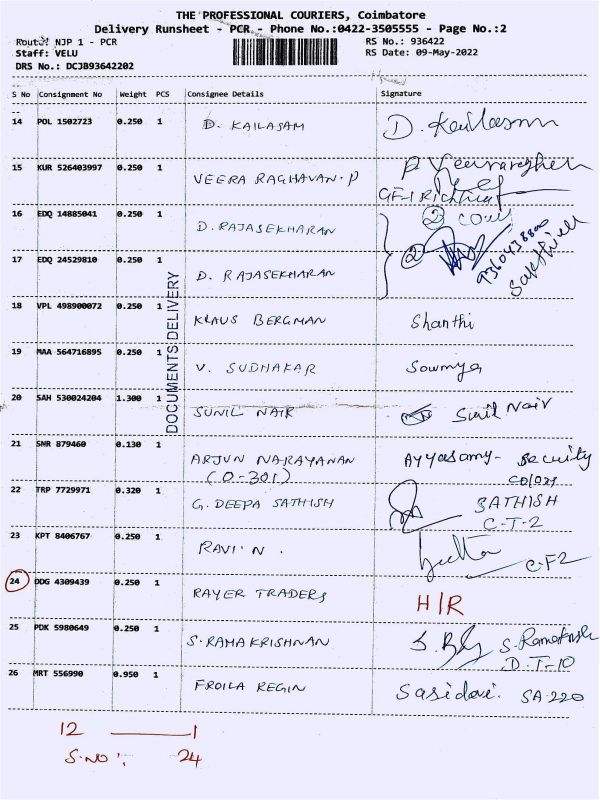 THE PROFESSIONAL COURIERS, Coimbatore
Delivery Runsheet - PCR - Phone No.:0422-3505555 - Page No.:2
Route: NJP 1 - PCR
RS No.: 936422
Staff: VELU
RS Date: 09-May-2022
DRS No.: DCJB93642202
S No Consignment No Weight PCS Consignee Details Signature
14 POL 1502723 0.250 1 D. KAILASAM D. Kailasam
15 KUR 526403997 0.250 1 VEERA RAGHAVAN.P P Veeraraghavan
GF-1
16 EDQ 14885041 0.250 1 D. RAJASEKHARAN ②
17 EDQ 24529810 0.250 1 D. RAJASEKHARAN ② Sakthivel
DOCUMENTS DELIVERY
18 VPL 498900072 0.250 1 KLAUS BERGMAN Shanthi
19 MAA 564716895 0.250 1 V. SUDHAKAR Sowmya
20 SAH 530024204 1.300 1 SUNIL NAIR Sunil Nair
21 SNR 879460 0.130 1 ARJUN NARAYANAN Ayyasamy- Security
(O-301)
22 TRP 7729971 0.320 1 G. DEEPA SATHISH SATHISH
C-T-2
23 KPT 8406767 0.250 1 RAVI. N. C-F2
24 DDG 4309439 0.250 1 RAYER TRADERS H/R
25 PDK 5980649 0.250 1 S. RAMAKRISHNAN S. Ramakrish
D.T-10
26 MRT 556990 0.950 1 FROILA REGIN Sasidevi. SA-220
12 — 1
S.NO: 24